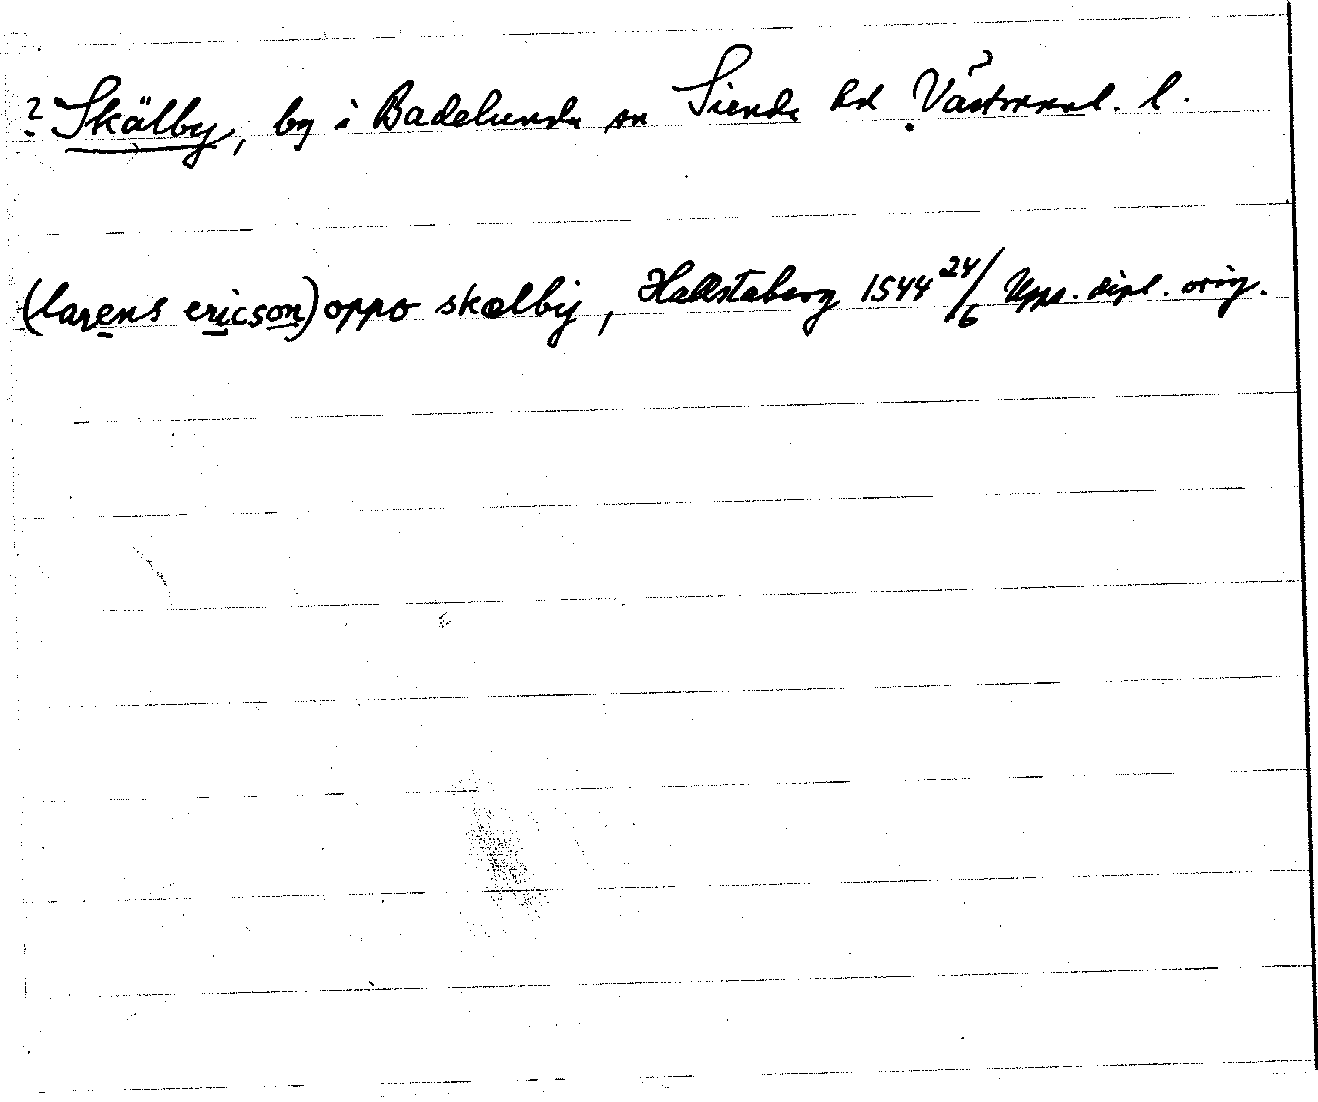 ? Skälby, by i Badelunda sn Siende hd Västmanl. l. ?
(larens ericson) oppo skælby, Hallstaberg 1544 24/6 Upps. dipl. orig.